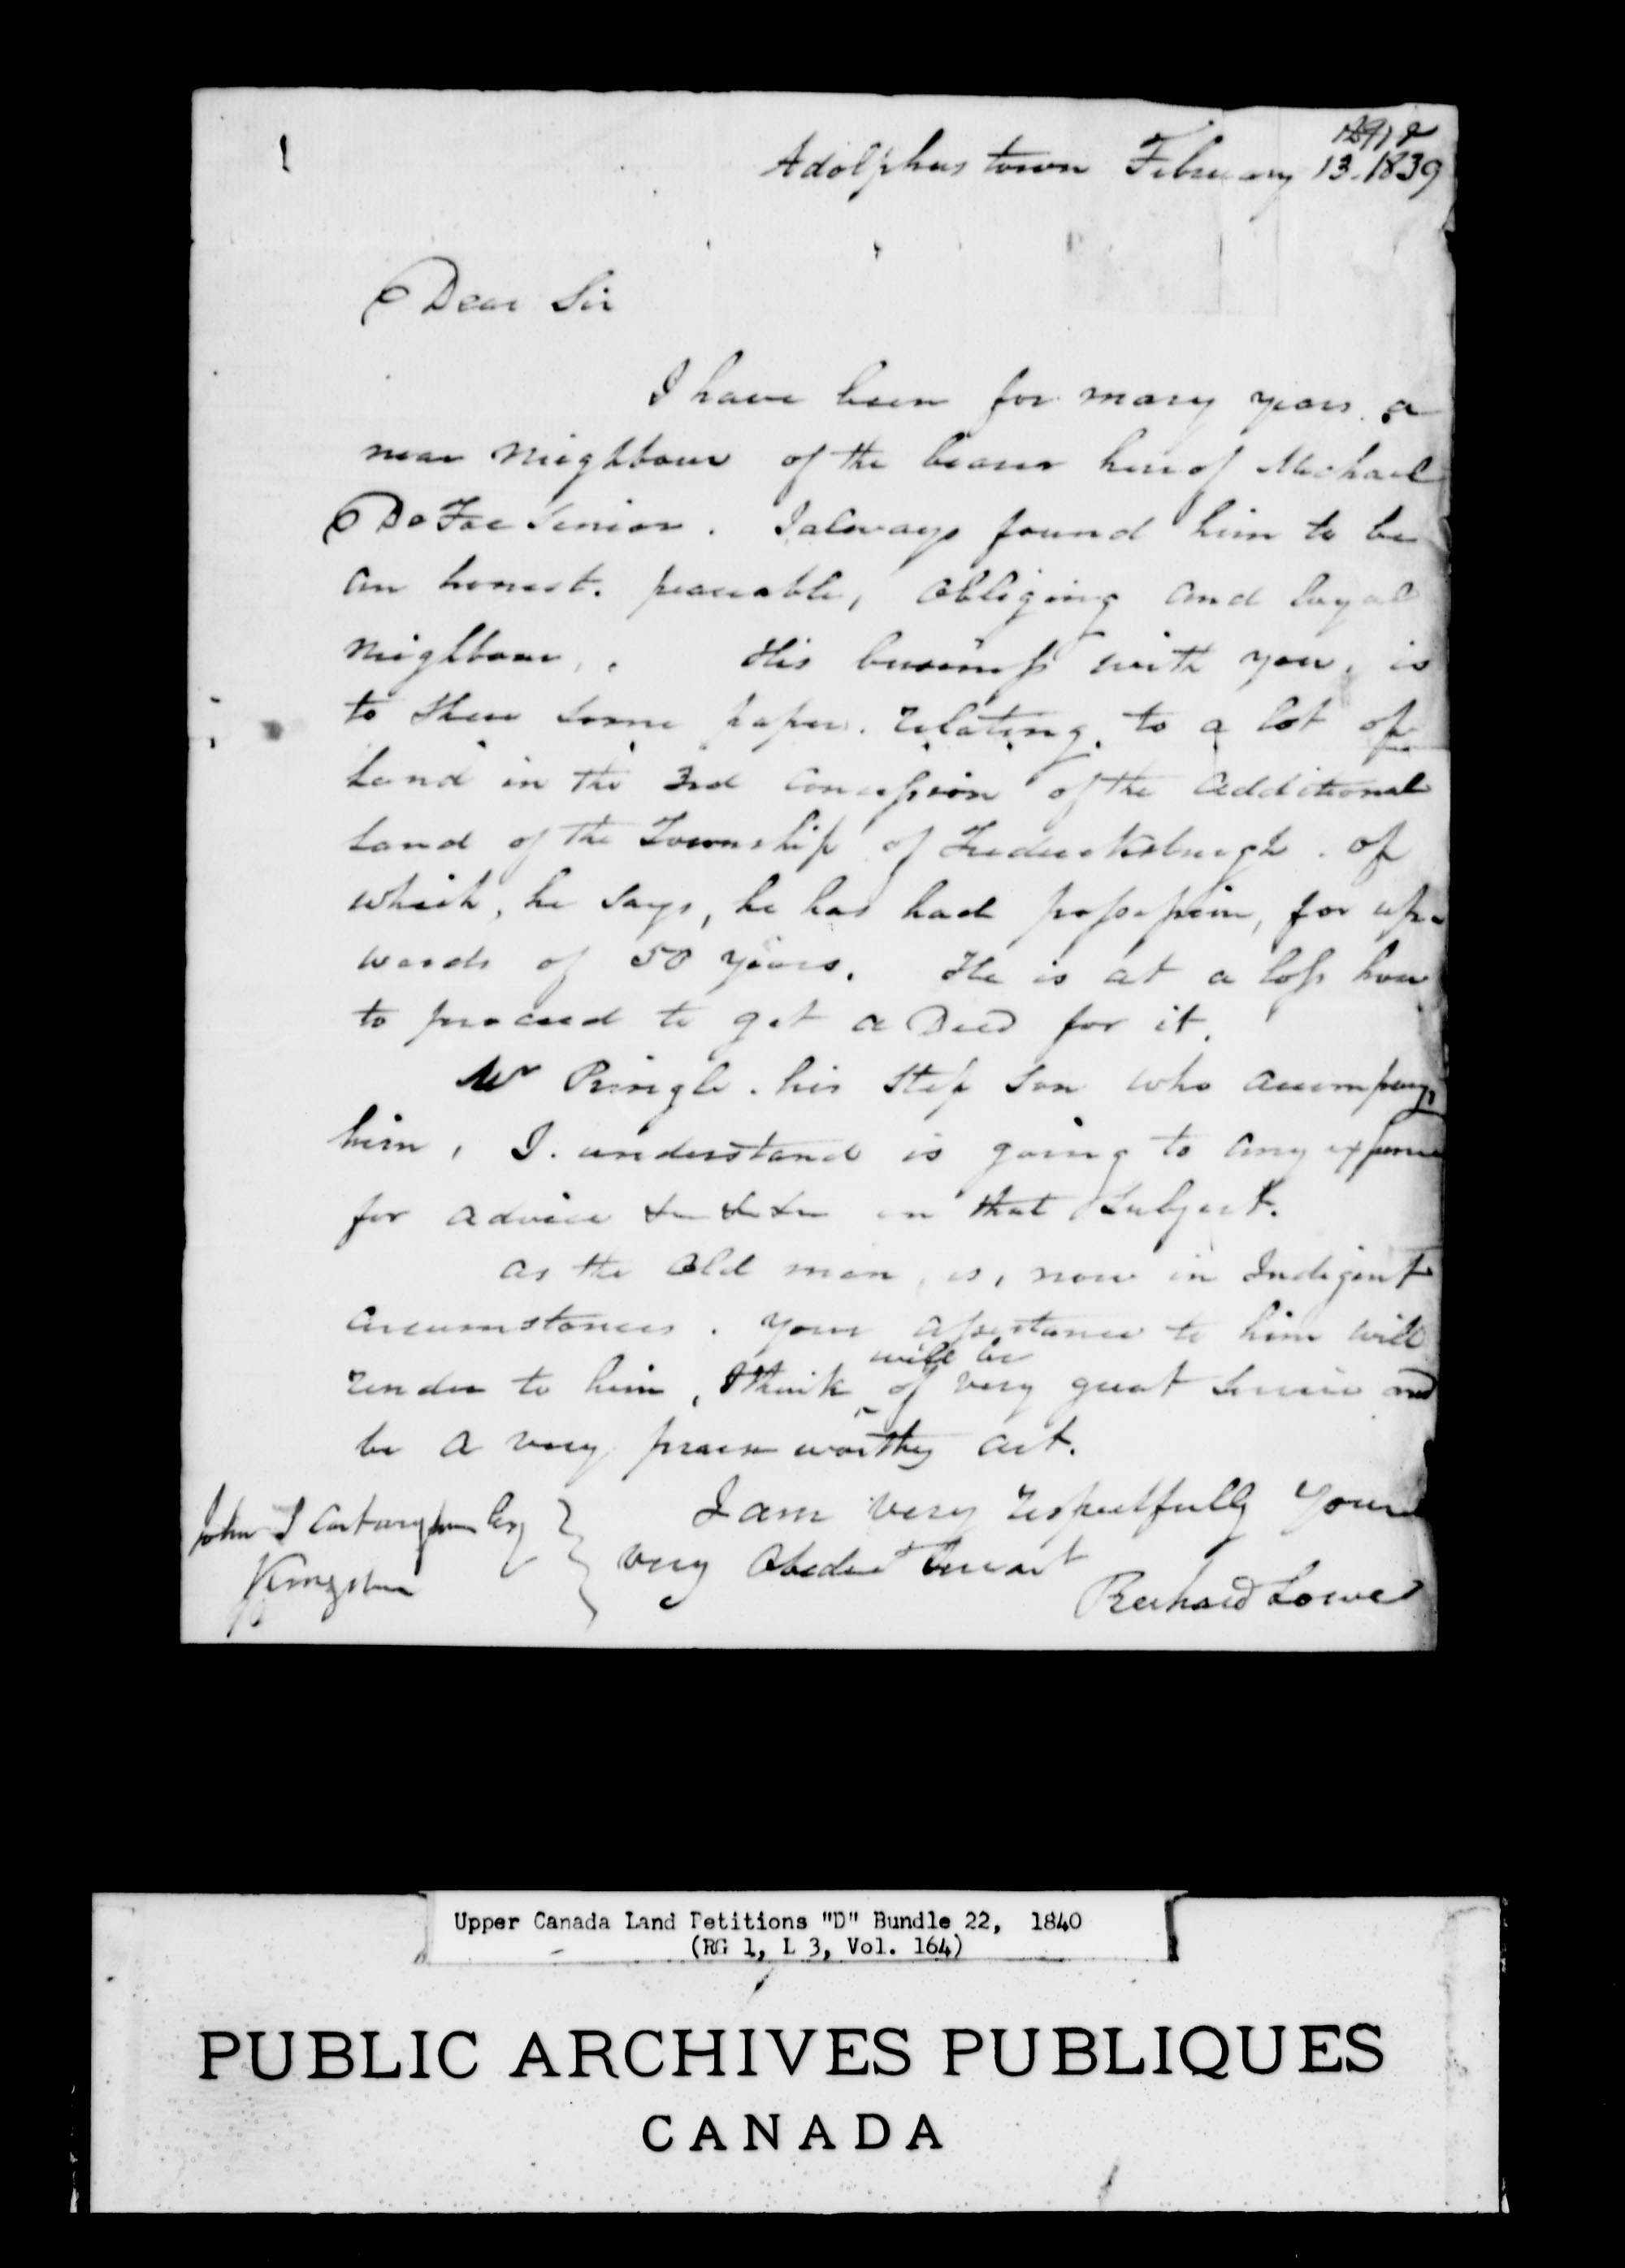 Adolphustown February 13. 1839
Dear Sir
I have been for many years a
near Neighbour of the bearer hereof Michael
DeFoe Senior. I always found him to be
an honest. peaceable, obliging and loyal
Neighbour. His business with you, is
to shew some papers. relating to a lot of
Land in the 3rd Concession of the additional
Land of the Township of Fredericksburgh. of
which, he says, he has had possession, for up-
wards of 50 years. He is at a loss how
to proceed to get a Deed for it.
Mr Pringle. his Step Son who accompanys
him, I. understand is going to any expense
for advice on that Subject.
as the Old man, is, now in Indigent
Circumstances. your assistance to him will
render to him, I think will be of very great Service and
be a very praise worthy act.
I am very respectfully Your
very Obedient Servant
Richard Lowe
John S Cartwright Esq
Kingston
Upper Canada Land Petitions "D" Bundle 22, 1840
(RG 1, L 3, Vol. 164)
PUBLIC ARCHIVES PUBLIQUES
CANADA